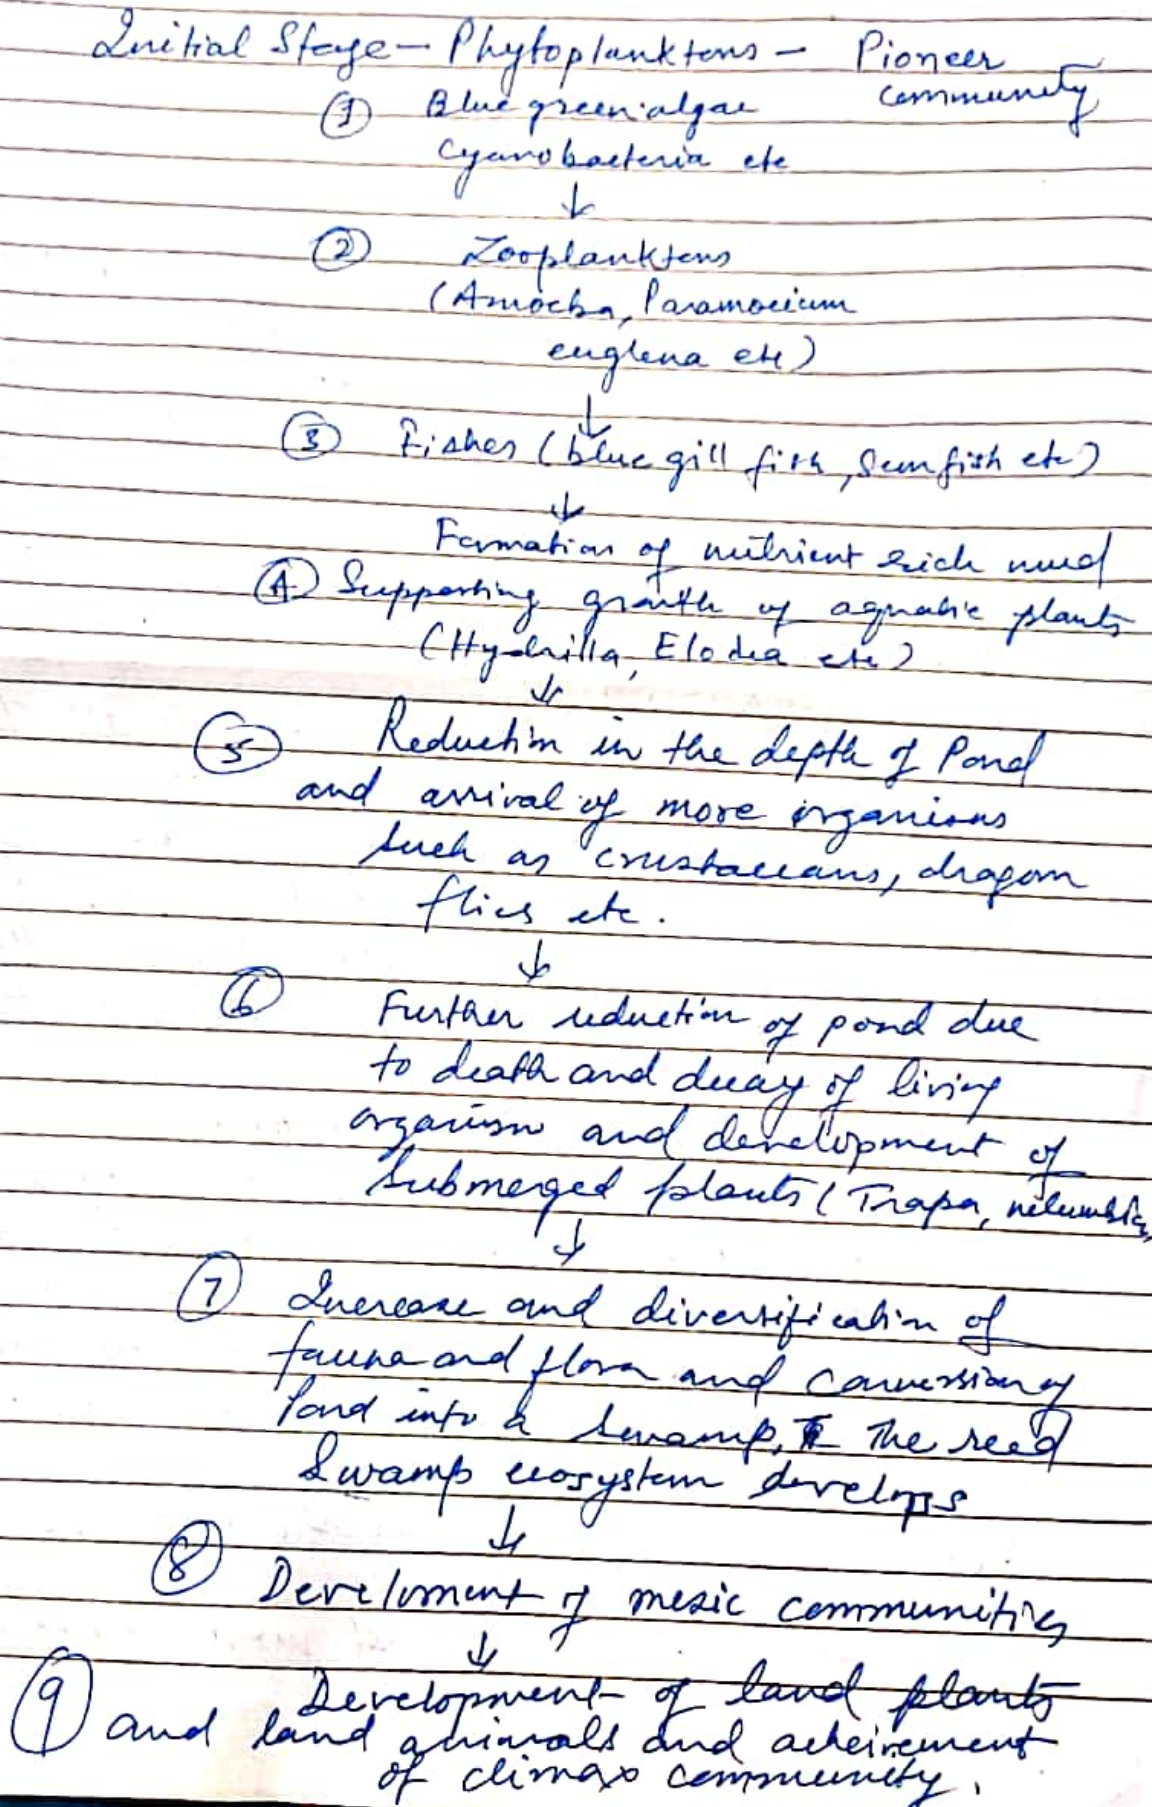 Initial Stage – Phytoplanktons – Pioneer
community
① Blue green algae
Cyanobacteria etc
↓
② Zooplanktons
(Amoeba, Paramoecium
euglena etc)
↓
③ Fishes (blue gill fish, Sun fish etc)
↓
Formation of nutrient rich mud
④ Supporting growth of aquatic plants
(Hydrilla, Elodea etc)
↓
⑤ Reduction in the depth of Pond
and arrival of more organisms
such as crustaceans, dragon
flies etc.
↓
⑥ Further reduction of pond due
to death and decay of living
organism and development of
submerged plants (Trapa,
↓
⑦ Increase and diversification of
fauna and flora and conversion of
Pond into a swamp. The reed
Swamp ecosystem develops
↓
⑧ Develoment of mesic communities
↓
⑨ Development of land plants
and land animals and acheivement
of climax community.